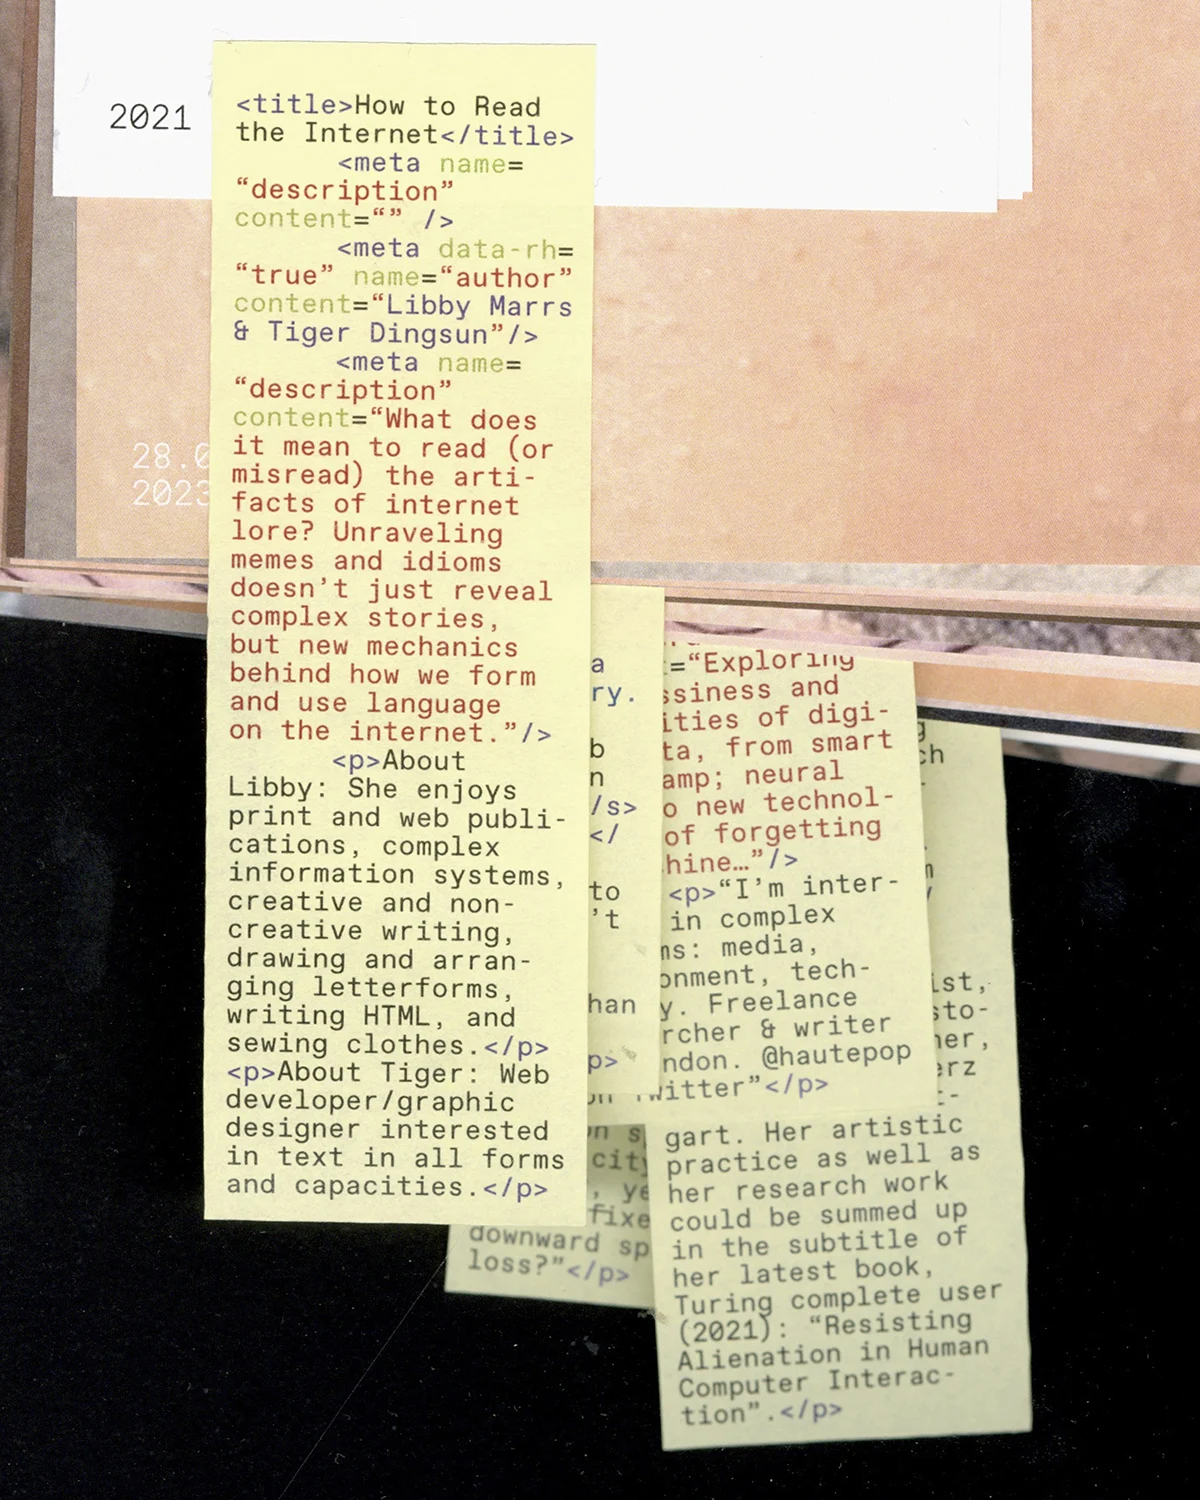 2021
<title>How to Read
the Internet</title>
<meta name=
“description”
content=“” />
<meta data-rh=
“true” name=“author”
content=“Libby Marrs
& Tiger Dingsun”/>
<meta name=
“description”
content=“What does
it mean to read (or
misread) the arti-
facts of internet
lore? Unraveling
memes and idioms
doesn’t just reveal
complex stories,
but new mechanics
behind how we form
and use language
on the internet.”/>
<p>About
Libby: She enjoys
print and web publi-
cations, complex
information systems,
creative and non-
creative writing,
drawing and arran-
ging letterforms,
writing HTML, and
sewing clothes.</p>
<p>About Tiger: Web
developer/graphic
designer interested
in text in all forms
and capacities.</p>
28.0
2023
a
ry.
b
n
/s>
</
to
’t
han
p>
city
, ye
fixe
downward sp
loss?”</p>
=“Exploring
ssiness and
ities of digi-
ta, from smart
amp; neural
o new technol-
of forgetting
hine…”/>
<p>“I’m inter-
in complex
ms: media,
onment, tech-
y. Freelance
rcher & writer
ndon. @hautepop
witter”</p>
ch
ist,
sto-
her,
erz
t-
gart. Her artistic
practice as well as
her research work
could be summed up
in the subtitle of
her latest book,
Turing complete user
(2021): “Resisting
Alienation in Human
Computer Interac-
tion”.</p>